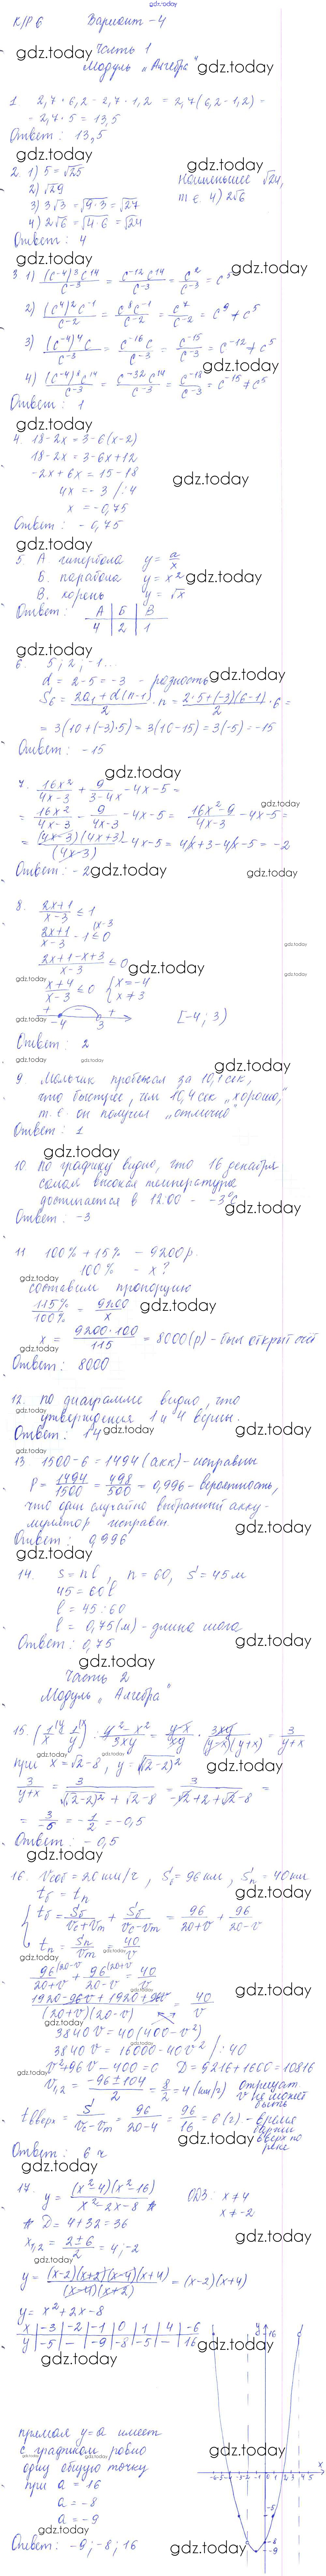 К/Р 6 Вариант - 4
Часть 1
Модуль „Алгебра"
gdz.today
1. 2,7 · 6,2 - 2,7 · 1,2 = 2,7(6,2 - 1,2) =
= 2,7 · 5 = 13,5
Ответ: 13,5
2. 1) 5 = √25
2) √29
3) 3√3 = √(9·3) = √27
4) 2√6 = √(4·6) = √24
Наименьшее √24,
т.е. 4) 2√6
Ответ: 4
3 1) (c⁻⁴)³c¹⁴/c⁻³ = c⁻¹²c¹⁴/c⁻³ = c²/c⁻³ = c⁵
2) (c⁴)²c⁻¹/c⁻² = c⁸c⁻¹/c⁻² = c⁷/c⁻² = c⁹ ≠ c⁵
3) (c⁻⁴)⁴c/c⁻³ = c⁻¹⁶c/c⁻³ = c⁻¹⁵/c⁻³ = c⁻¹² ≠ c⁵
4) (c⁻⁴)⁸c¹⁴/c⁻³ = c⁻³²c¹⁴/c⁻³ = c⁻¹⁸/c⁻³ = c⁻¹⁵ ≠ c⁵
Ответ: 1
4. 18-2x = 3-6(x-2)
18-2x = 3-6x+12
-2x+6x = 15-18
4x = -3 /:4
x = -0,75
Ответ: -0,75
5. А. гипербола y = a/x
Б. парабола y = x²
В. корень y = √x
Ответ: А | Б | В
4 | 2 | 1
6. 5; 2; -1...
d = 2-5 = -3 - разность
S₆ = (2a₁+d(n-1))/2 · n = (2·5+(-3)(6-1))/2 · 6 =
= 3(10+(-3)·5) = 3(10-15) = 3(-5) = -15
Ответ: -15
7. 16x²/(4x-3) + 9/(3-4x) - 4x-5 =
= 16x²/(4x-3) - 9/(4x-3) - 4x-5 = (16x²-9)/(4x-3) - 4x-5 =
= (4x-3)(4x+3)/(4x-3) - 4x-5 = 4x+3-4x-5 = -2
Ответ: -2
8. (2x+1)/(x-3) ≤ 1
(2x+1)/(x-3) - 1 ≤ 0
(2x+1-x+3)/(x-3) ≤ 0
(x+4)/(x-3) ≤ 0 { x = -4
x ≠ 3
+ - +
-4 3 [-4; 3)
Ответ: 2
9 Мальчик пробежал за 10,1 сек,
что быстрее, чем 10,4 сек „хорошо,"
т.е. он получил „отлично"
Ответ: 1
10. По графику видно, что 16 декабря
самая высокая температура
достигается в 12:00 - -3°C
Ответ: -3
11 100% + 15% - 9200 р.
100% - x?
составим пропорцию
115%/100% = 9200/x
x = 9200·100/115 = 8000 (р) - был открыт счёт
Ответ: 8000
12. По диаграмме видно, что
утверждения 1 и 4 верны.
Ответ: 14
13. 1500-6 = 1494 (акк) - исправны
P = 1494/1500 = 498/500 = 0,996 - вероятность,
что один случайно выбранный акку-
мулятор исправен.
Ответ: 0,996
14. S = nl, n = 60, S = 45 м
45 = 60l
l = 45:60
l = 0,75 (м) - длина шага
Ответ: 0,75
Часть 2
Модуль „Алгебра"
15. (1/x - 1/y) · (y²-x²)/3xy = (y-x)/xy · 3xy/(y-x)(y+x) = 3/(y+x)
при x = √2-8, y = √(√2-2)²
3/(y+x) = 3/(√(√2-2)²+√2-8) = 3/(-√2+2+√2-8) =
= 3/-6 = -1/2 = -0,5
Ответ: -0,5
16. Vсоб = 20 км/ч, Sб = 96 км, Sп = 40 км
tб = tп
tб = Sб/(Vс+Vт) + Sб/(Vс-Vт) = 96/(20+v) + 96/(20-v)
tп = Sп/Vт = 40/v
96/(20+v) + 96/(20-v) = 40/v
(1920-96v+1920+96v)/((20+v)(20-v)) = 40/v
3840v = 40(400-v²)
3840v = 16000-40v² /:40
v²+96v-400 = 0 D = 9216+1600 = 10816
v₁,₂ = (-96±104)/2 = 8/2 = 4 (км/ч) отрицат.
v не может
быть
tвверх = S/(Vс-Vт) = 96/(20-4) = 96/16 = 6 (ч) - время
баржи
вверх по
реке
Ответ: 6 ч
17. y = (x²-4)(x²-16)/(x²-2x-8) ОДЗ: x ≠ 4
x ≠ -2
D = 4+32 = 36
x₁,₂ = (2±6)/2 = 4; -2
y = (x-2)(x+2)(x-4)(x+4)/((x-4)(x+2)) = (x-2)(x+4)
y = x²+2x-8
x | -3 | -2 | -1 | 0 | 1 | 4 | -6
y | -5 | - | -9 | -8 | -5 | - | 16
прямая y=a имеет
с графиком ровно
одну общую точку
при a = 16
a = -8
a = -9
Ответ: -9; -8; 16